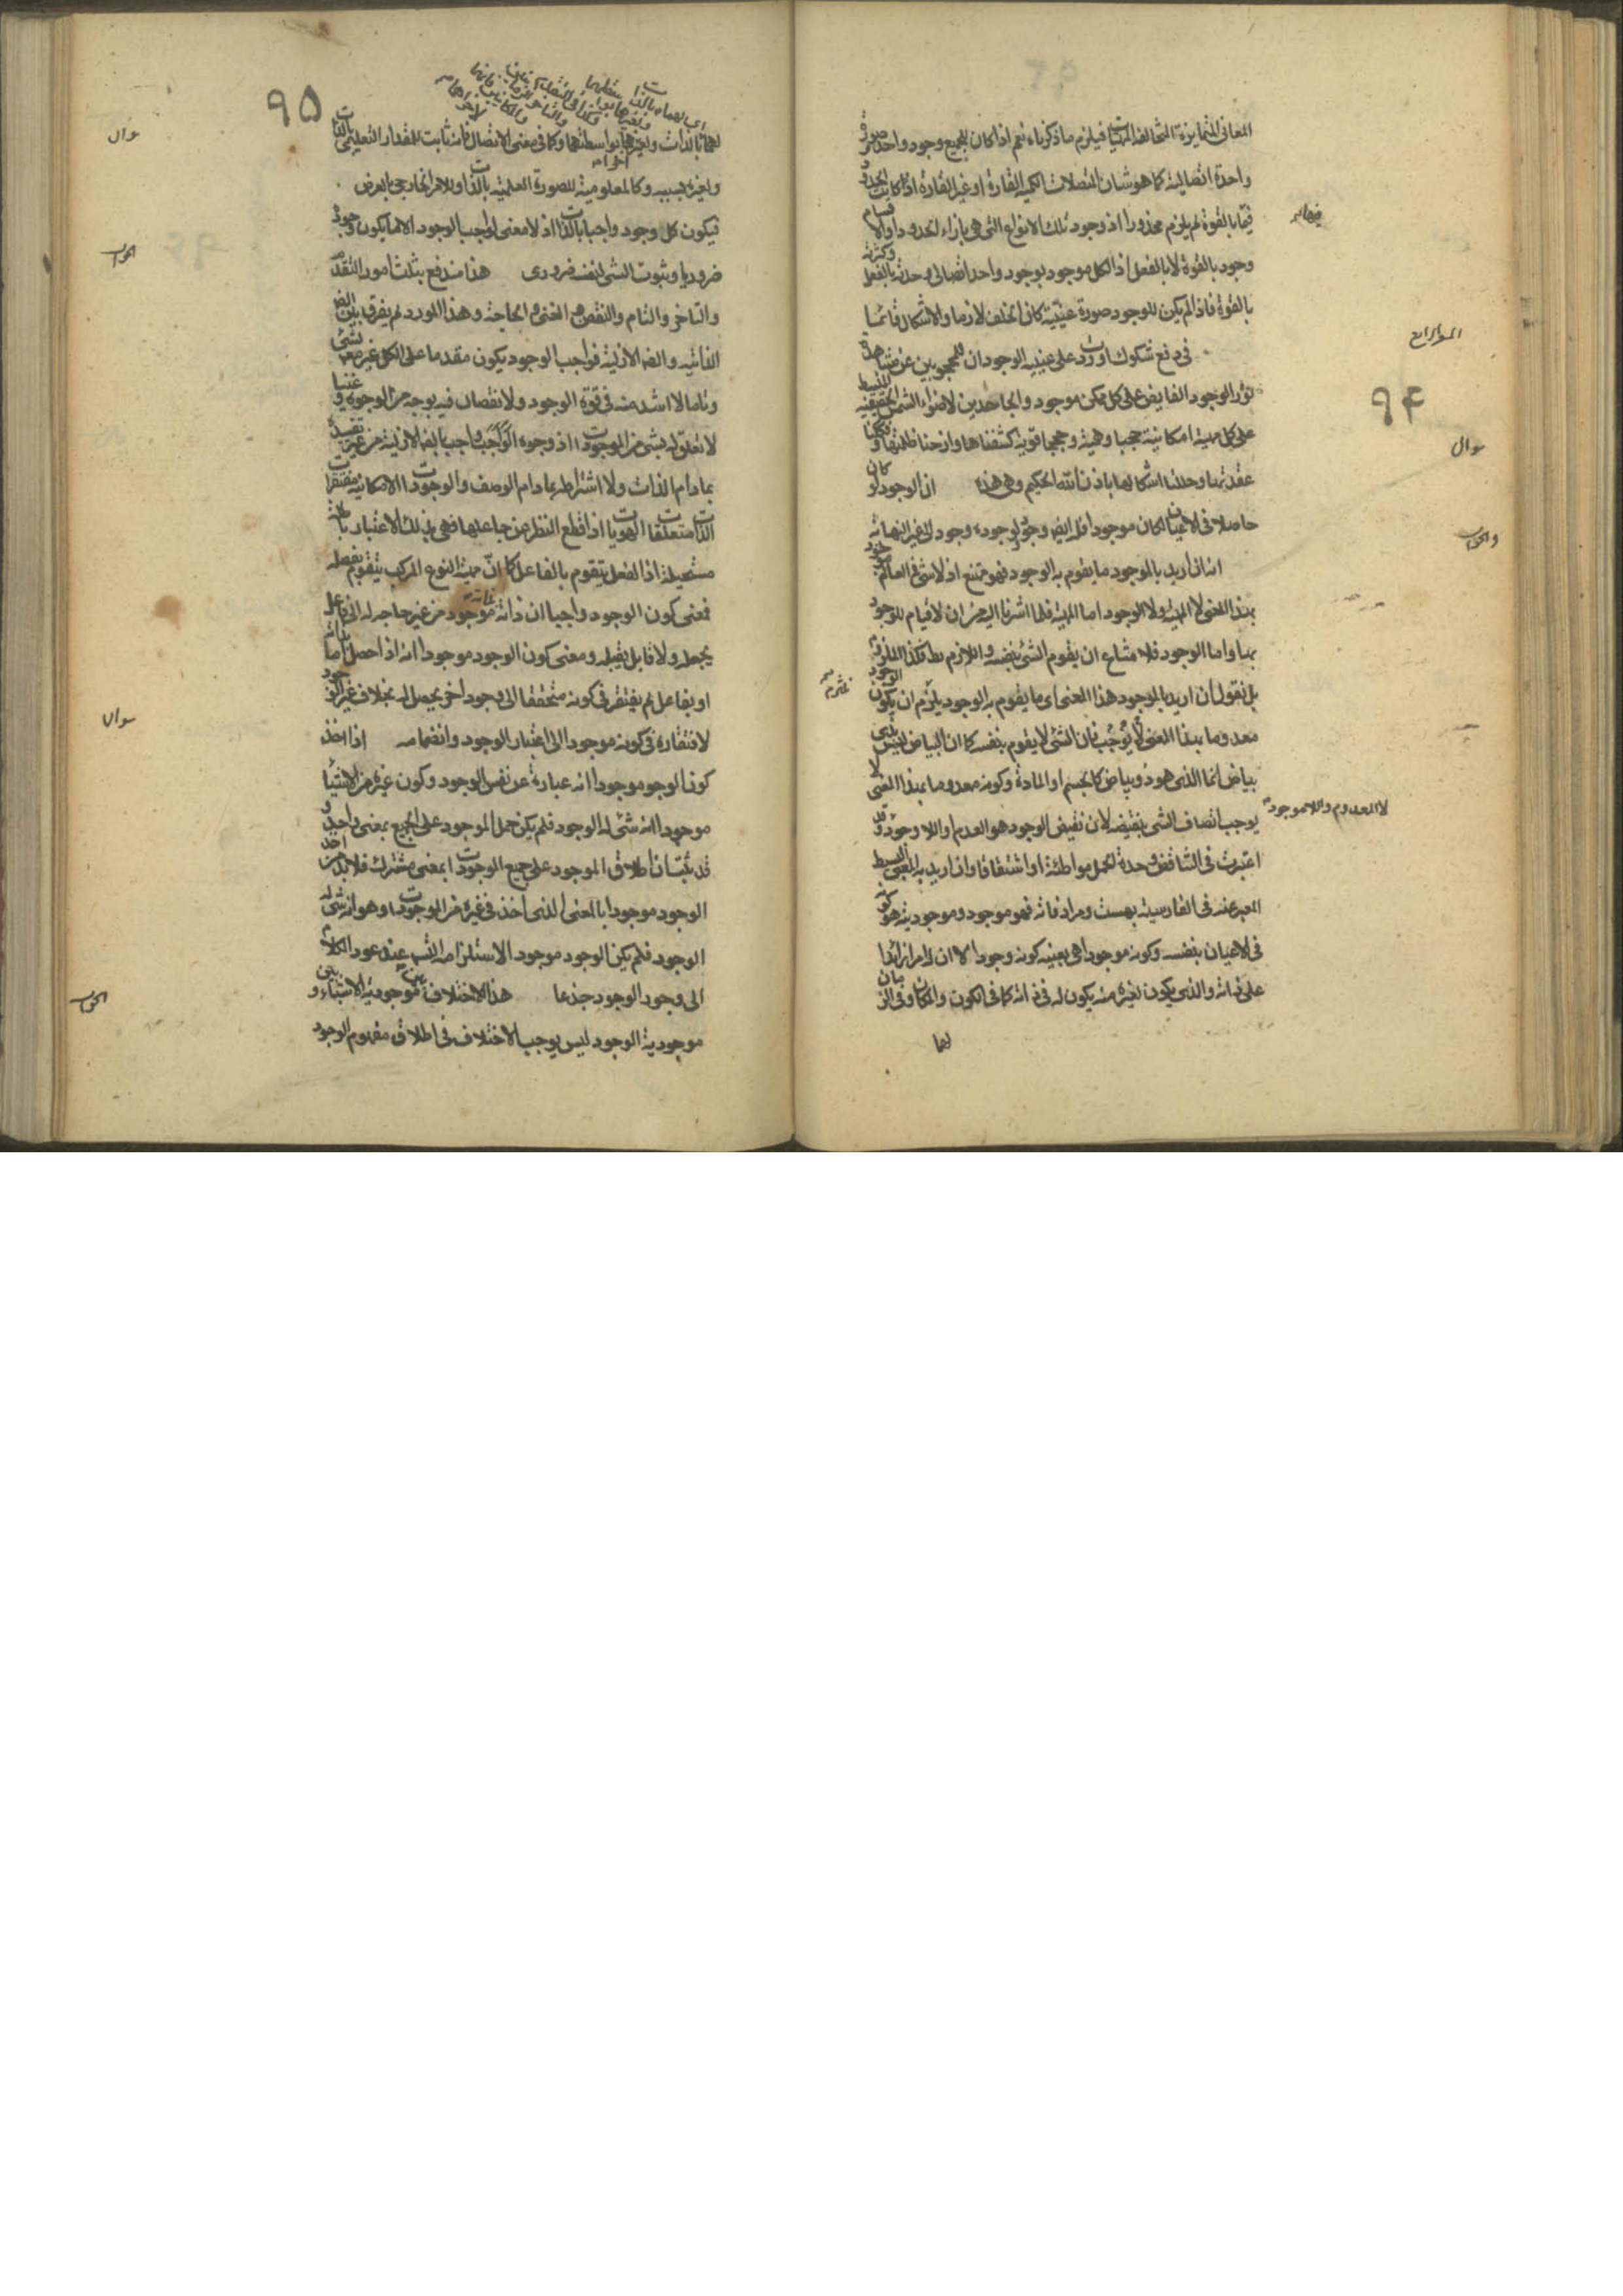 المعانى المتمايزة المتخالفة المهيات فيلزم ما ذكرناه نعم اذا كان للجميع وجود واحد صورة
واحدة اتصالية كما هو شان المتصلات الكمية القارة او غير القارة اذ كانت الحدود
فيها بالقوة لم يلزم محذورا اذ وجود تلك الانواع التى هى بازاء الحدود والاقسام
وجود بالقوة لا بالفعل اذ الكل موجود بوجود واحد اتصالى وحدته بالفعل وكثرته
بالقوة فاذا لم يكن للوجود صورة عينية كان الخلف لازما والاشكال قائما
المشعر الرابع
فى دفع شكوك اوردت على عينية الوجود ان للمحجوبين عن مشاهدة
نور الوجود الفايض على كل ممكن موجود والجاحدين لاضواء الشمس الحقيقية المنبسط
على كل مهية امكانية حجبا وهمية وحججا قوية كشفناها وازحنا ظلمتها وفككنا
عقدتها وحللنا اشكالها باذن الله الحكيم وهى هذه
سوال
ان الوجود لو كان
حاصلا فى الاعيان لكان موجودا فله ايضا وجود ولوجوده وجود الى غير النهاية
والجواب
انه ان اريد بالموجود ما يقوم به الوجود فهو ممتنع اذ لا شئ فى العالم موجود
بهذا المعنى لا المهية ولا الوجود اما المهية فلما اشرنا اليه من ان لا قيام للوجود
بها واما الوجود فلامتناع ان يقوم الشئ بنفسه واللازم بط فكذا الملزوم
بل نقول ان اريد بالموجود هذا المعنى اى ما يقوم به الوجود يلزم ان يكون الوجود
معدوما بهذا المعنى لا يوجب فان الشئ لا يقوم بنفسه كما ان البياض ليس بذى
بياض انما الذى هو ذو بياض كالجسم او المادة وكونه معدوما بهذا المعنى لا
يوجب اتصاف الشئ بنقيضه لان نقيض الوجود هو العدم او اللاوجود وقد
لا المعدوم واللاموجود
اعتبرت فى التناقض وحدة الحمل مواطئة او اشتقاقا وان اريد به المعنى البسيط
المعبر عنه فى الفارسية بهست ومرادفاته فهو موجود وموجوديته هو كونه
فى الاعيان بنفسه وكونه موجودا هى بعينه كونه وجودا لا ان له امرا زائدا
على ذاته والذى يكون لغيره منه يكون له فى ذاته كما فى الكون والمكان وفى الزمان
لهما
٩٤
٩٥
لهما بالذات ولغيرهما بواسطتهما وكما فى معنى الاتصال فانه ثابت للمقدار التعليمى بالذات
ولغيره بسببه وكالمعلومية للصورة العلمية بالذات وللامر الخارجى بالعرض
سوال
فيكون كل وجود واجبا بالذات اذ لا معنى لواجب الوجود الا ما يكون وجوده
ضروريا وثبوت الشئ لنفسه ضرورى
الجواب
هذا مندفع بثلث امور التقدم
والتاخر والتام والنقص والغنى والحاجة وهذا المورد لم يفرق بين الضرورة
الذاتية والضرورة الازلية فواجب الوجود يكون مقدما على الكل غير معلول لشئ
وتاما لا اشد منه فى قوة الوجود ولا نقصان فيه بوجه من الوجوه وغنيا
لا تعلق له بشئ من الموجودات اذ وجوده الواجب واجب بالضرورة الازلية من غير تقييده
بما دام الذات ولا اشتراطه بما دام الوصف والوجودات الامكانية مفتقرات
الذات متعلقات الهويات اذا قطع النظر عن جاعلها فهى بذلك الاعتبار باطلة
مستحيلة اذ الفعل يتقوم بالفاعل كما ان مهية النوع المركب يتقوم بفصله
فمعنى كون الوجود واجبا ان ذاته بذاته موجود من غير حاجة له الى جاعل
يجعله ولا قابل يقبله ومعنى كون الوجود موجودا انه اذا حصل اما بذاته
او بفاعل لم يفتقر فى كونه متحققا الى وجود اخر يحصل له بخلاف غير الوجود
لافتقاره فى كونه موجودا الى اعتبار الوجود وانضمامه
سوال
اذا اخذ
كون الوجود موجودا انه عبارة عن نفس الوجود وكون غيره من الاشياء
موجودا انه شئ له الوجود فلم يكن حمل الموجود على الجميع بمعنى واحد و
قد ثبت ان اطلاق الموجود على جميع الموجودات بمعنى مشترك فلا بد من اخذ
الوجود موجودا بالمعنى الذى اخذ فى غيره من الموجودات وهو انه شئ له
الوجود فلم يكن الوجود موجود الاستلزامه التسم عند عود الكلام
الى وجود الوجود جذعا
الجواب
هذا الاختلاف بين موجودية الاشياء و
موجودية الوجود ليس يوجب الاختلاف فى اطلاق مفهوم الوجود